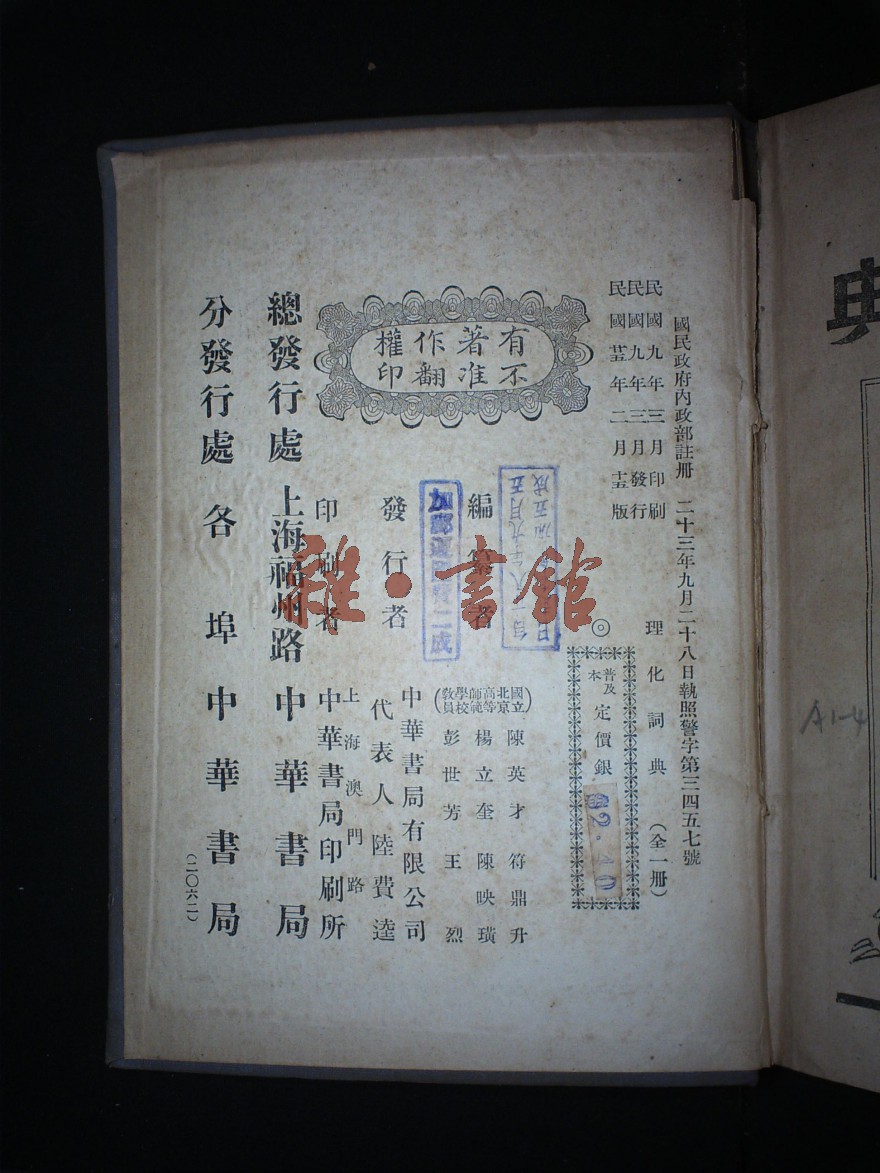 國民政府內政部註冊　二十三年九月二十八日執照警字第三四五七號
民國九年三月印刷
民國九年三月發行
民國廿五年二月十五版
理化詞典（全一冊）
◎普及本 定價銀 $2.40
有著作權
不准翻印
編纂者
（國立北京高等師範學校教員）
陳英才 符鼎升
楊立奎 陳映璜
彭世芳 王烈
發行者
中華書局有限公司
代表人 陸費逵
印刷者
上海澳門路
中華書局印刷所
總發行處 上海福州路 中華書局
分發行處 各埠 中華書局
（二〇六二）
雅·書館
典
A1-4